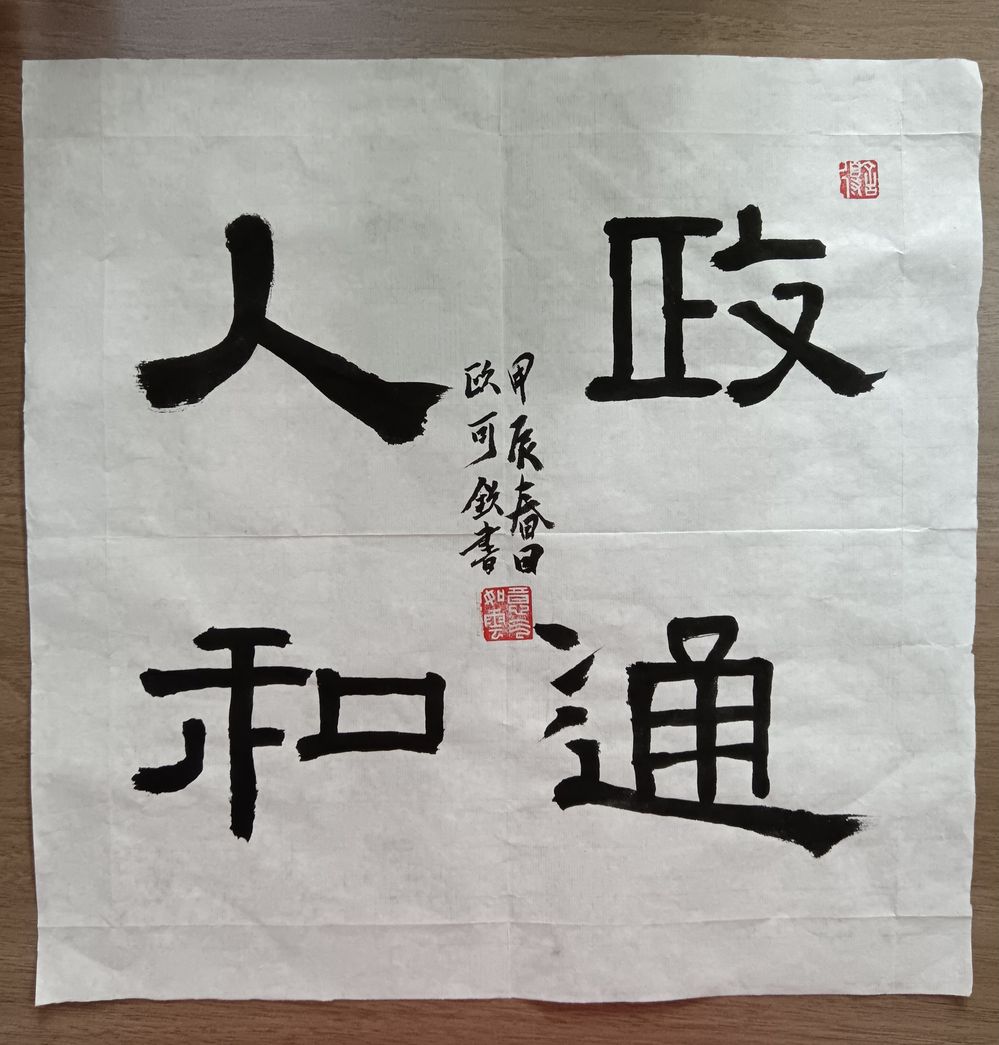 政通
人和
甲辰春日
欧可钦書